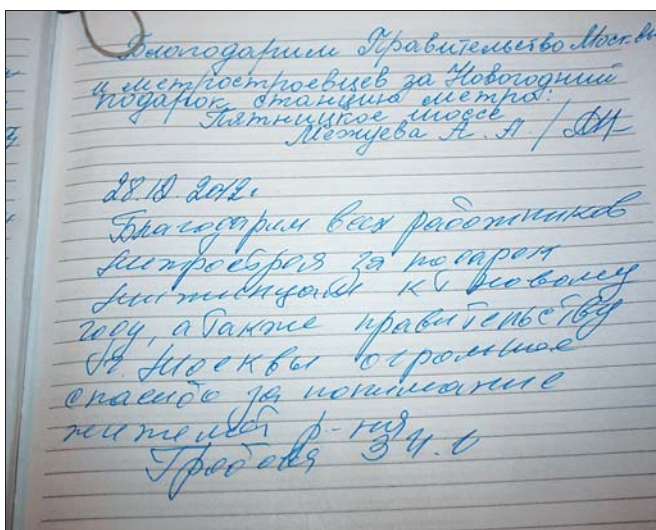 Благодарим Правительство Москвы
и метростроевцев за Новогодний
подарок станцию метро:
Пятницкое шоссе
Межуева А. А. /
28.12.2012г.
Благодарим всех работников
метростроя за подарок
митинцам к новому
году, а также правительству
г. Москвы огромное
спасибо за понимание
жителей р-на